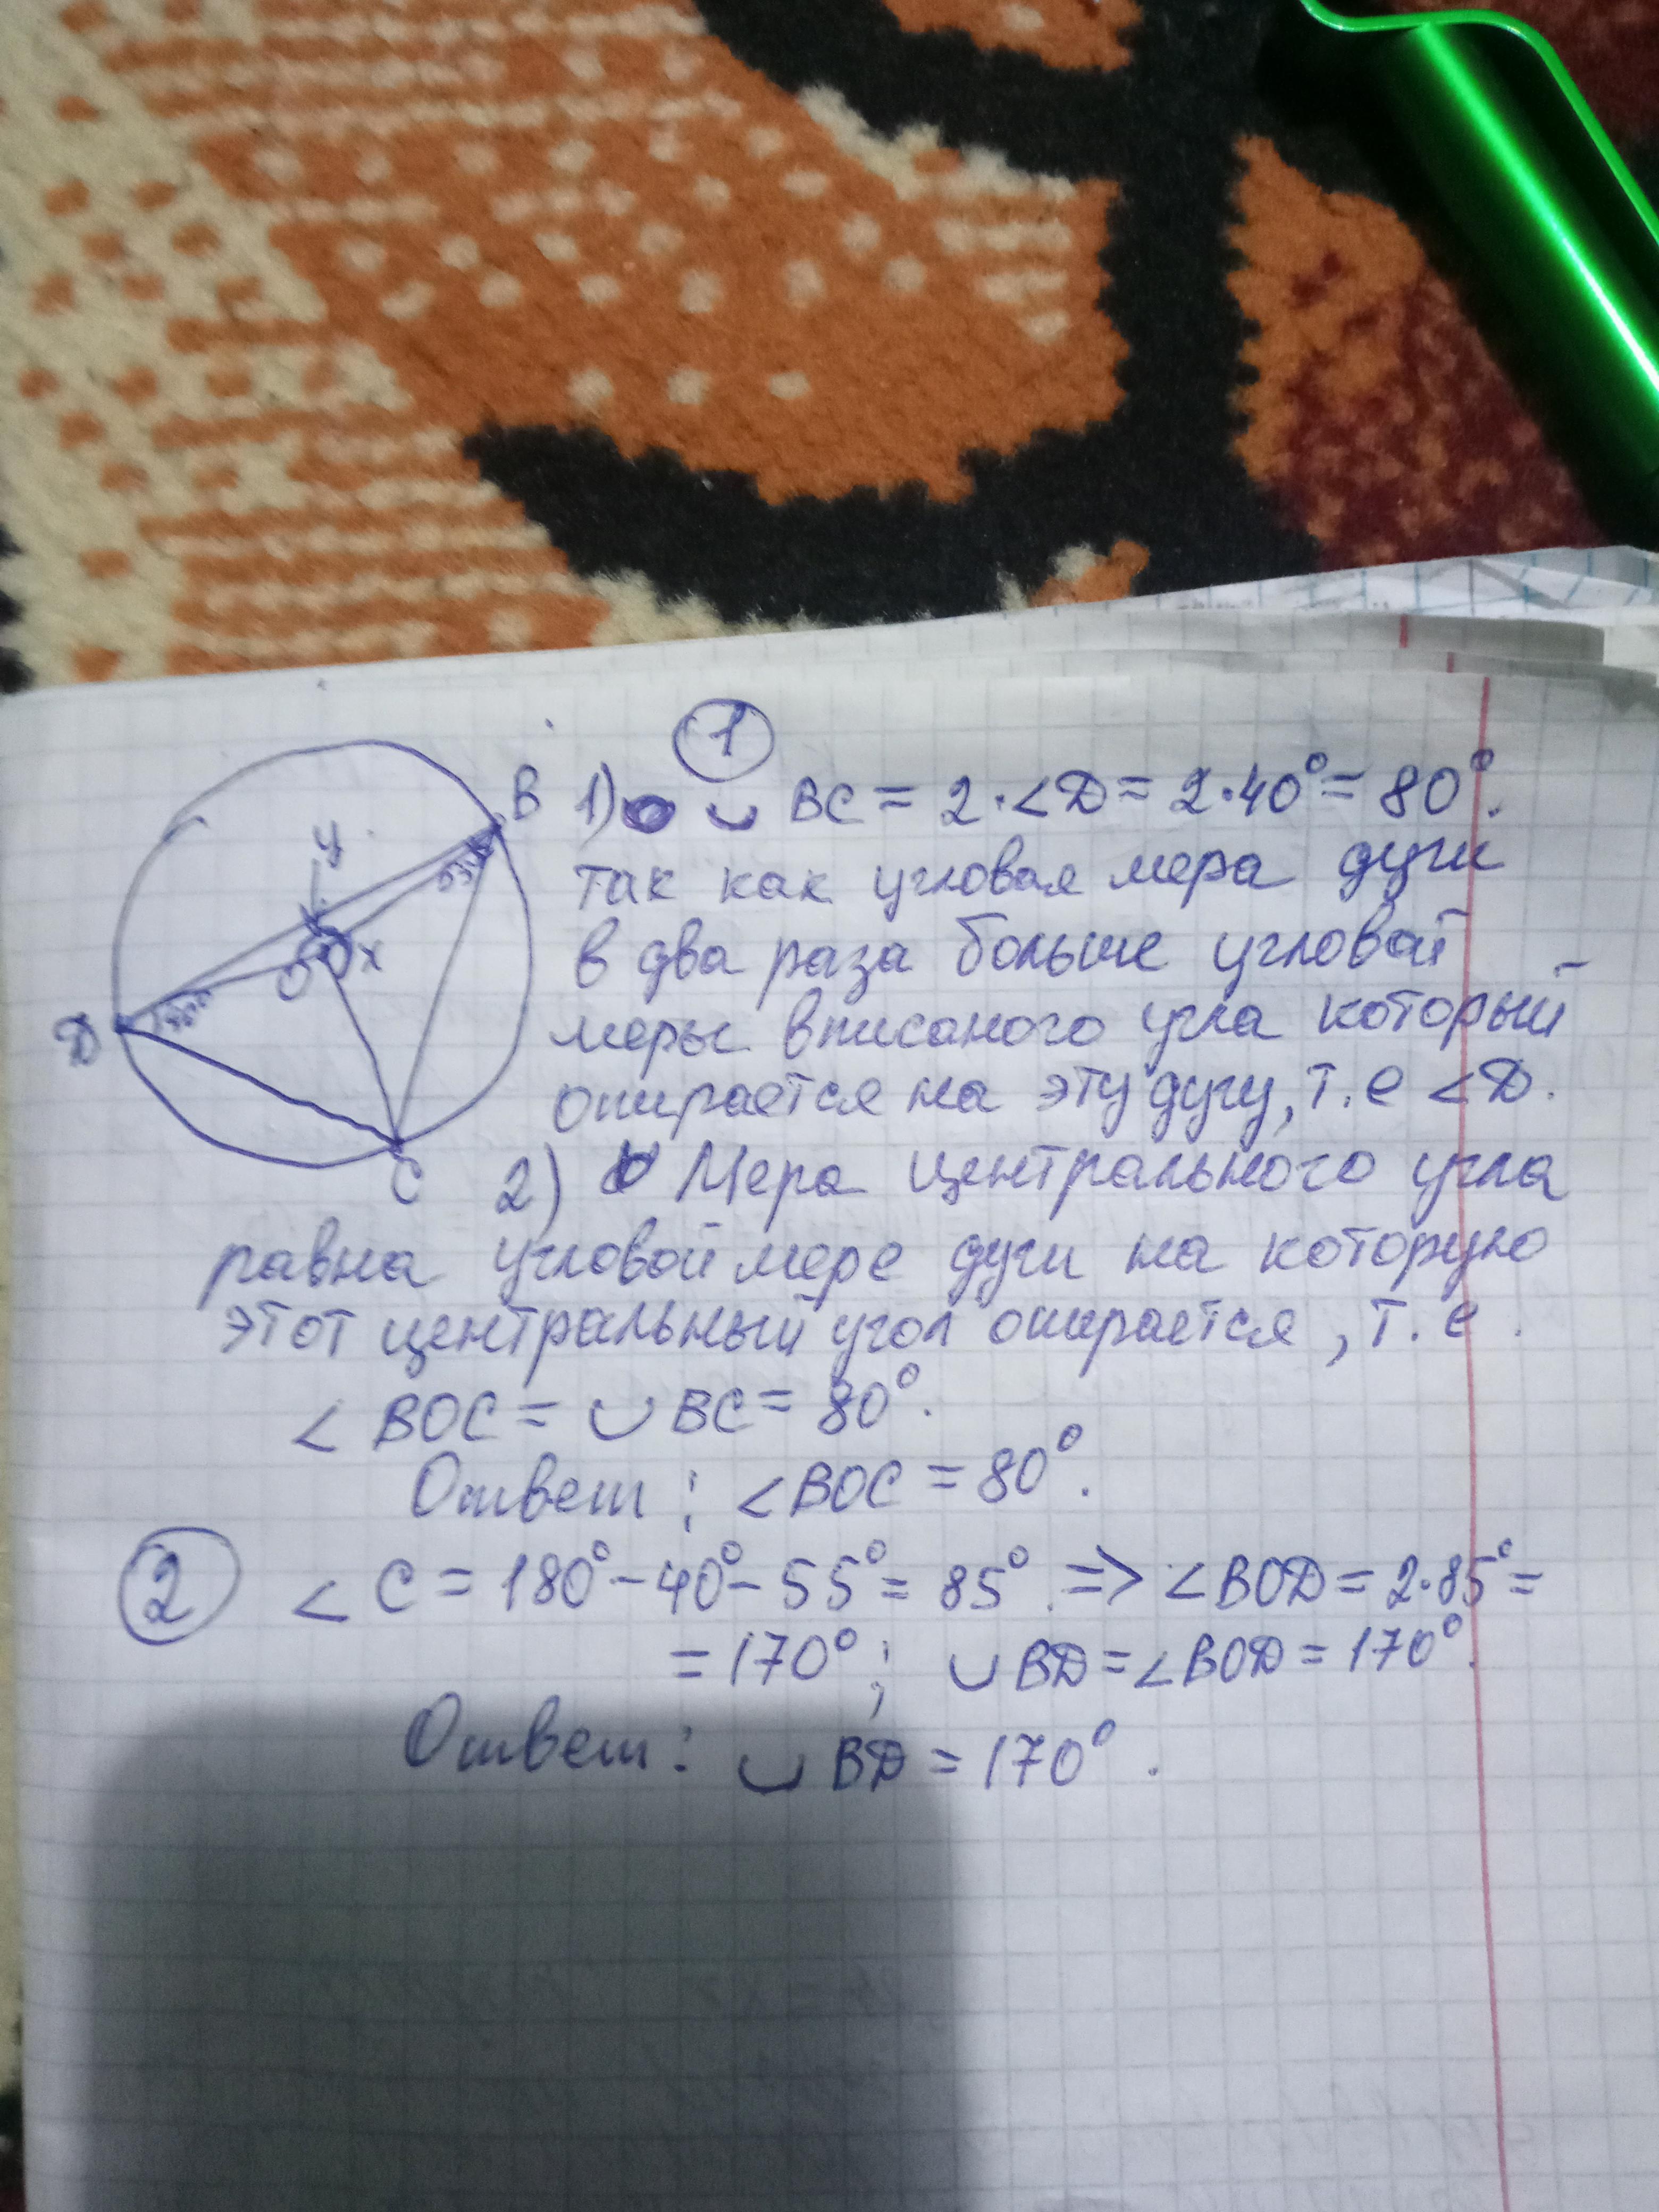 1
B
1) ◡ BC = 2·∠D = 2·40° = 80°.
y
так как угловая мера дуги
55°
в два раза больше угловой
O x
D 40°
меры вписаного угла который
опирается на эту дугу, т.е ∠D.
C
2) Мера центрального угла
равна угловой мере дуги на которую
этот центральный угол опирается, т.е.
∠ BOC = ◡ BC = 80°.
Ответ: ∠BOC = 80°.
2 ∠ C = 180° - 40° - 55° = 85°. => ∠BOD = 2·85° =
= 170°; ◡ BD = ∠BOD = 170°.
Ответ: ◡ BD = 170°.